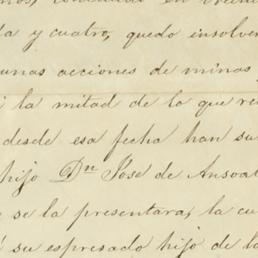 la y cuatro, quedo insolven
unas acciones de minas
i la mitad de lo que re
desde esa fecha han su
hijo Dn José de Ansoat
e se la presentara, la cu
su espresado hijo de la